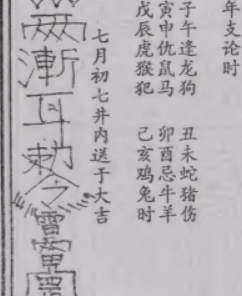 年支论时
子午逢龙狗 丑未蛇猪伤
寅申仇鼠马 卯酉忌牛羊
戊辰虎猴犯 己亥鸡兔时
七月初七井内送于大吉
漸耳勅令